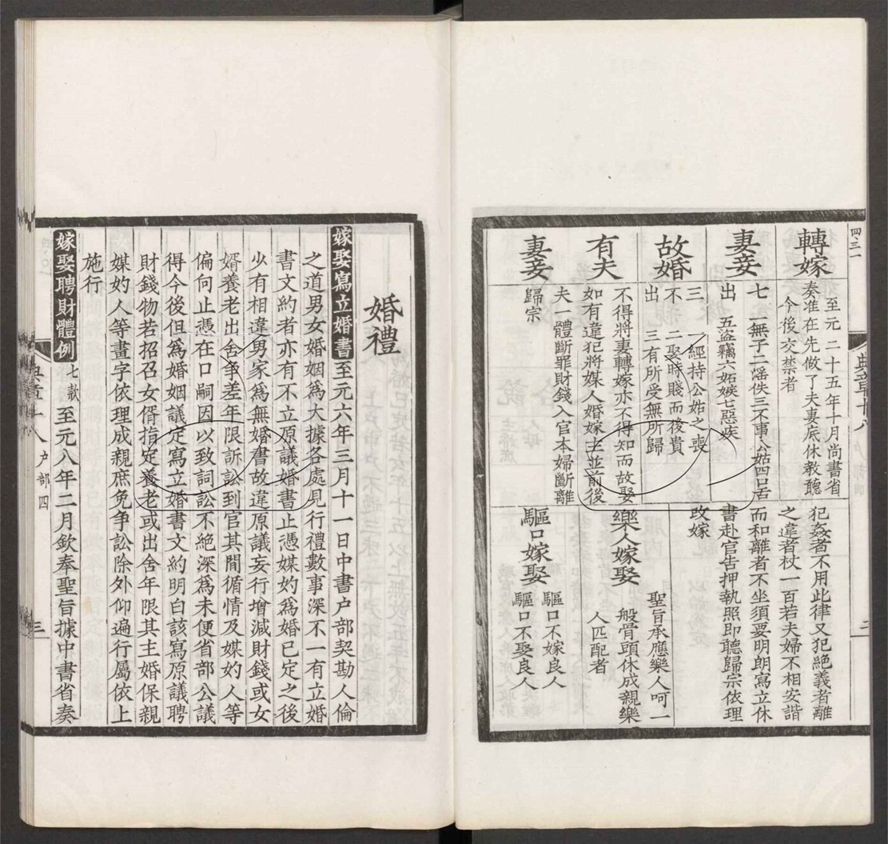 轉嫁
妻妾
至元二十五年十月尚書省
奏准在先做了夫妻底休教聽
今後交禁者
七 一無子二滛佚三不事公姑四口舌
出 五盜竊六妬嫉七惡疾
三 一經持公姑之喪
不 二娶時賤而後貴
出 三有所受無所歸
犯姦者不用此律又犯絶義者離
之違者杖一百若夫婦不相安諧
而和離者不坐須要明朗寫立休
書赴官告押執照即聽歸宗依理
改嫁
故婚
有夫
妻妾
不得將妻轉嫁亦不得知而故娶
如有違犯將媒人婚嫁主並前後
夫一體斷罪財錢入官本婦斷離
歸宗
樂人嫁娶
聖旨承應樂人呵一
般骨頭休成親樂
人匹配者
驅口嫁娶
驅口不嫁良人
驅口不娶良人
婚禮
嫁娶寫立婚書 至元六年三月十一日中書戶部契勘人倫
之道男女婚姻爲大據各處見行禮數事深不一有立婚
書文約者亦有不立原議婚書止憑媒妁爲婚已定之後
少有相違男家爲無婚書故違原議妄行增減財錢或女
婿養老出舍爭差年限訴訟到官其間循情及媒妁人等
偏向止憑在口嗣因以致詞訟不絶深爲未便省部公議
得今後但爲婚姻議定寫立婚書文約明白該寫原議聘
財錢物若招召女婿指定養老或出舍年限其主婚保親
媒妁人等畫字依理成親庶免爭訟除外仰遍行屬依上
施行
嫁娶聘財體例 七款 至元八年二月欽奉聖旨據中書省奏
典章十八 户部四 三